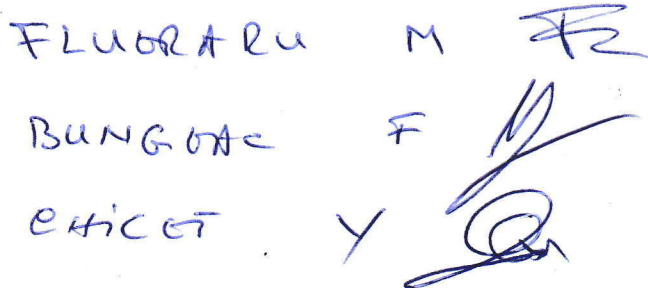 FLUERARU M
BUNGEAC F
CHICET Y